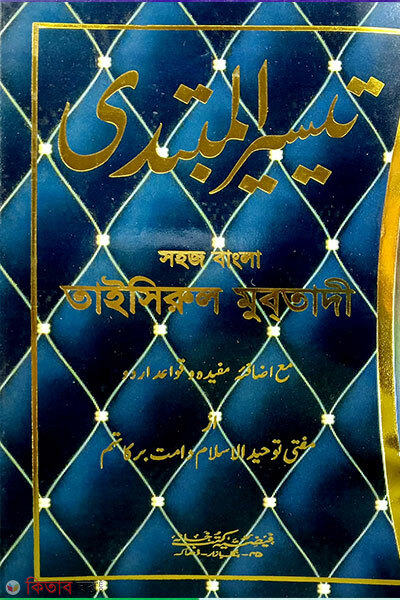 تیسیر المبتدی
সহজ বাংলা
তাইসিরুল মুব্‌তাদী
مع اضافۂ مفیدہ و قواعد اردو
از
مفتی توحید الاسلام دامت برکاتہم
কিতাব